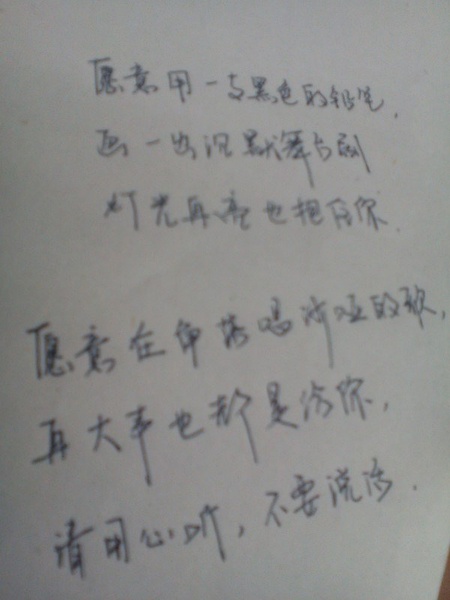 愿意用一支黑色的铅笔,
画一出沉默舞台剧
灯光再亮也抱住你
愿意在角落唱沙哑的歌,
再大声也都是给你,
请用心听,不要说话.